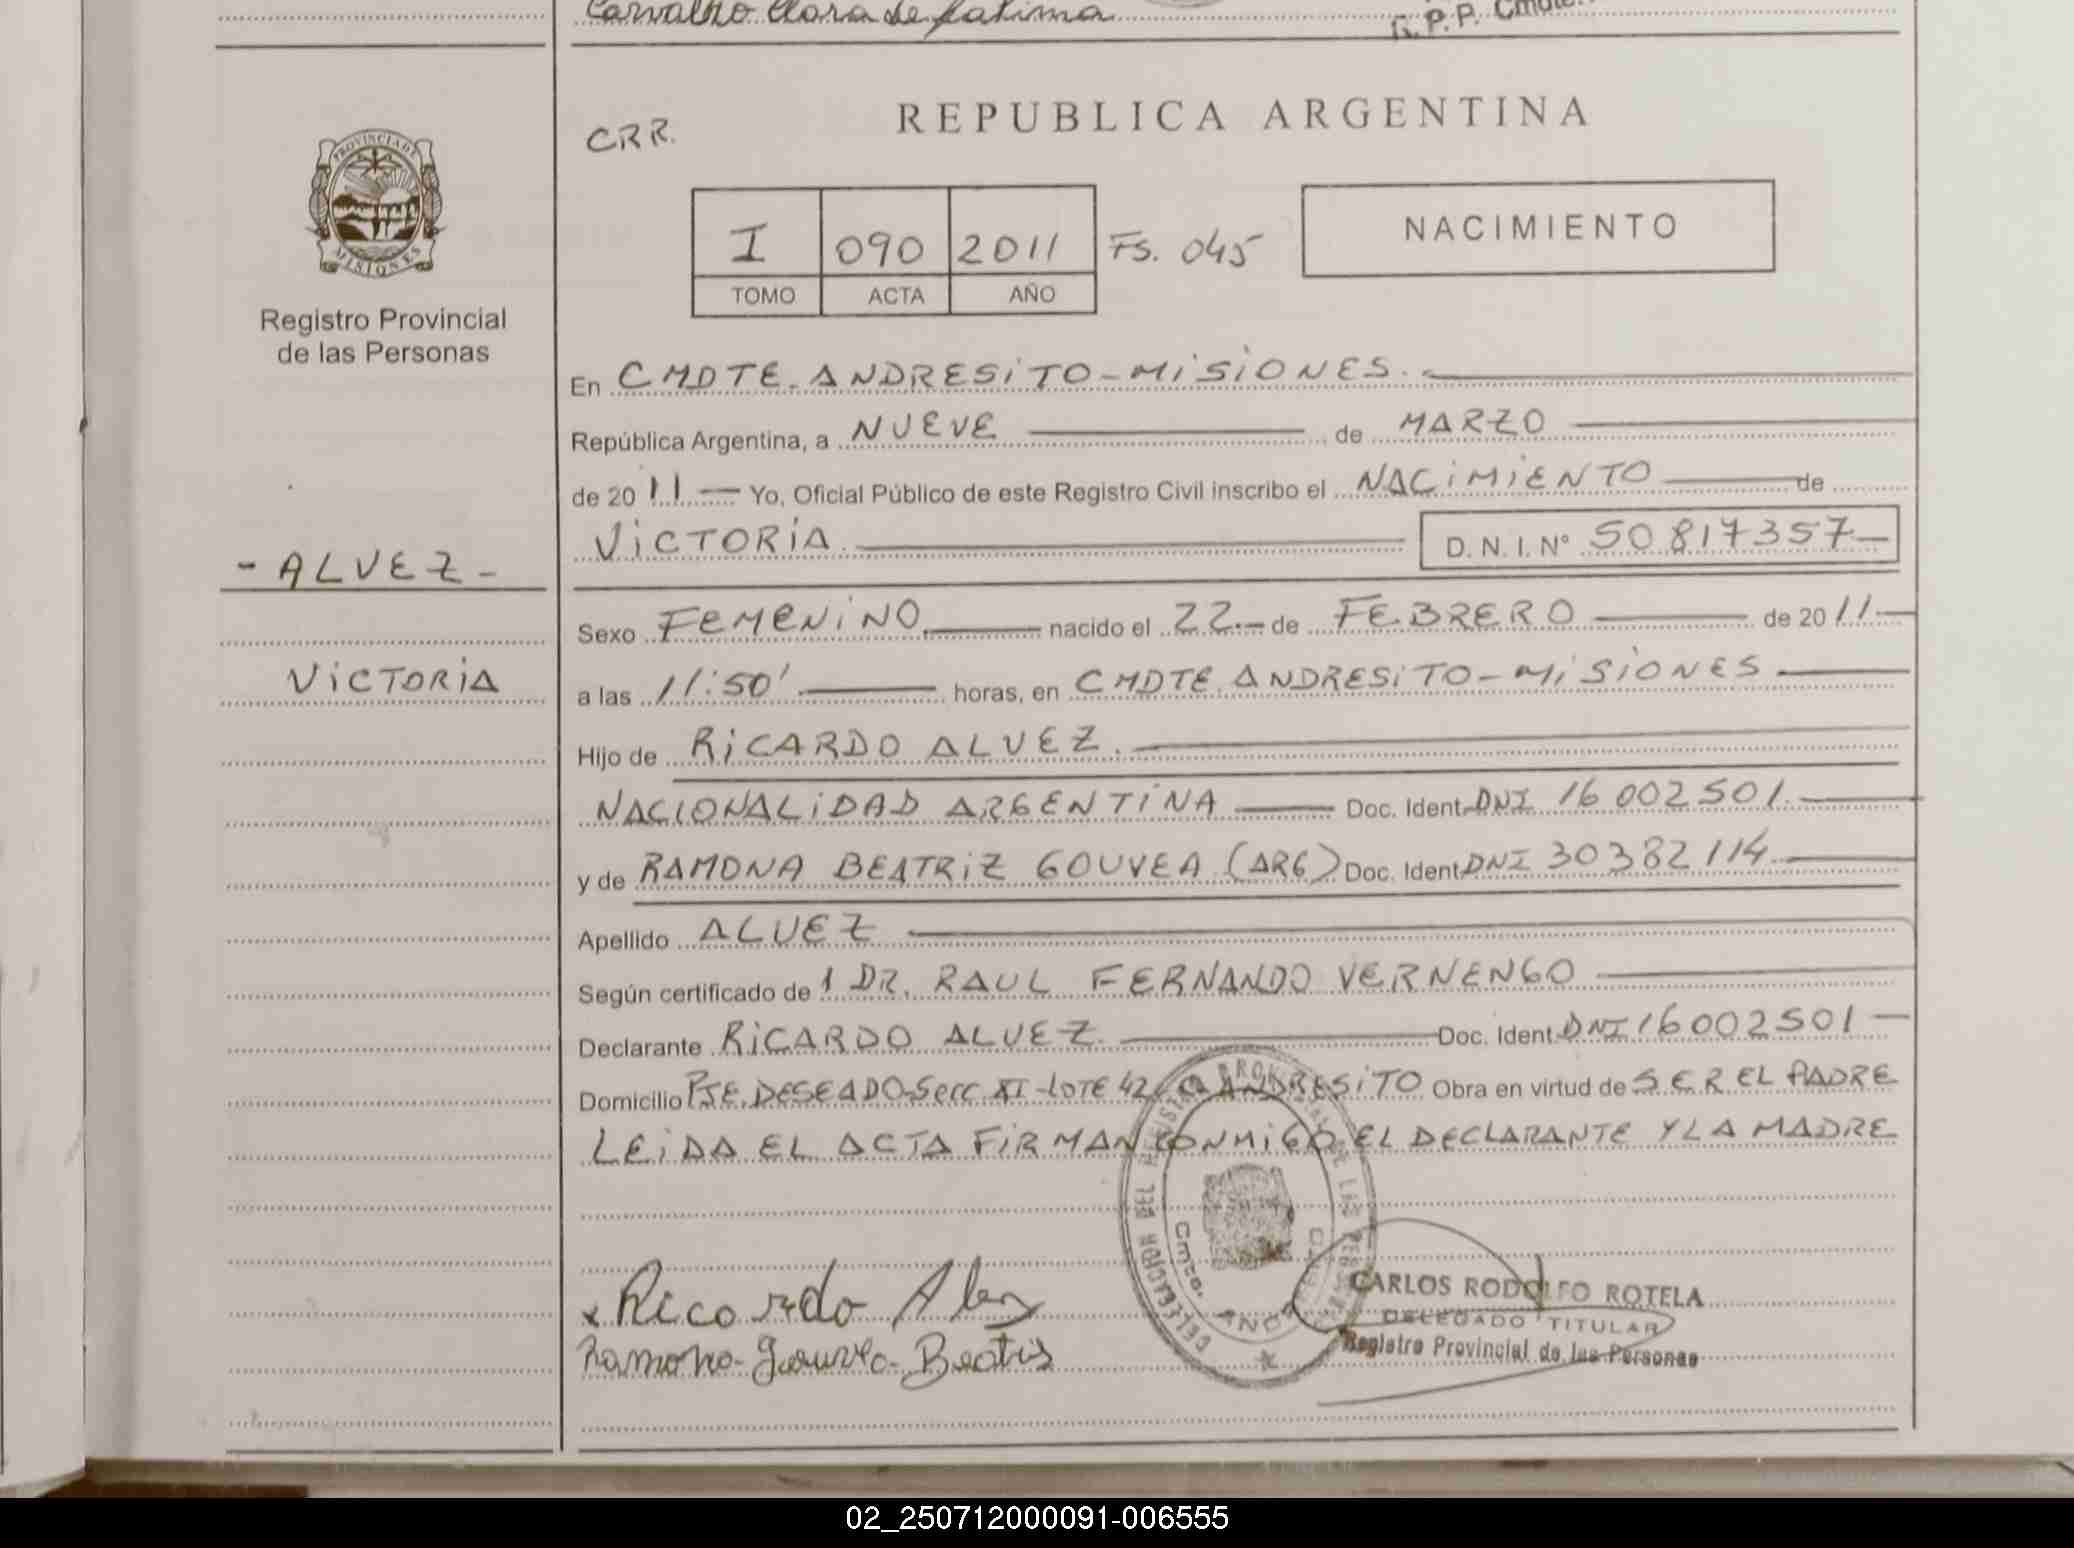 Carvalho Clara de Fatima
R.P.P. Cmdte.
REPUBLICA ARGENTINA
CRR.
PROVINCIA DE
MISIONES
Registro Provincial
de las Personas
I 090 2011 Fs. 045
TOMO ACTA AÑO
NACIMIENTO
En CMDTE. ANDRESiTO-MiSiONES.
República Argentina, a NUEVE de MARZO
de 2011 Yo, Oficial Público de este Registro Civil inscribo el NACiMiENTO de
ViCTORiA D. N. I. N° 50817357
- ALVEZ -
Sexo FEMENiNO nacido el 22 de FEBRERO de 2011
ViCTORiA
a las 11:50' horas, en CMDTE ANDRESiTO-MiSiONES
Hijo de RiCARDO ALVEZ.
NACIONALiDAD ARGENTiNA Doc. Ident. DNI 16 002501.
y de RAMONA BEATRiZ GOUVEA (ARG) Doc. Ident. DNI 30382114
Apellido ALVEZ
Según certificado de 1 DR. RAUL FERNANDO VERNENGO
Declarante RiCARDO ALVEZ. Doc. Ident. DNI 16002501
Domicilio PJE. DESEADO-Secc XI-LOTE 42 ANDRESiTO Obra en virtud de SER EL PADRE
LEiDA EL ACTA FiRMAN CONMiGO EL DECLARANTE Y LA MADRE
DELEGACION DEL REGISTRO PROVINCIAL DE LAS PERSONAS
Cmte.
x Ricardo Alvez
Ramona-Gouvea-Beatris
CARLOS RODOLFO ROTELA
DELEGADO TITULAR
Registro Provincial de las Personas
02_250712000091-006555